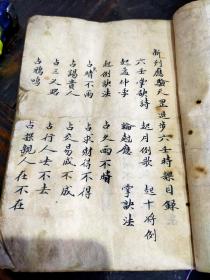 新刊應驗天里進步六壬時課目録
六壬掌訣詩　起月例歌　起十將例
起孟仲季　論起應　掌訣法
起例訣法　占久雨不晴
占晴不雨　占求財得不得
占謁貴人　占交易成不成
占三叉路　占行人去不去
占鴉鳴　占謀親人在不在